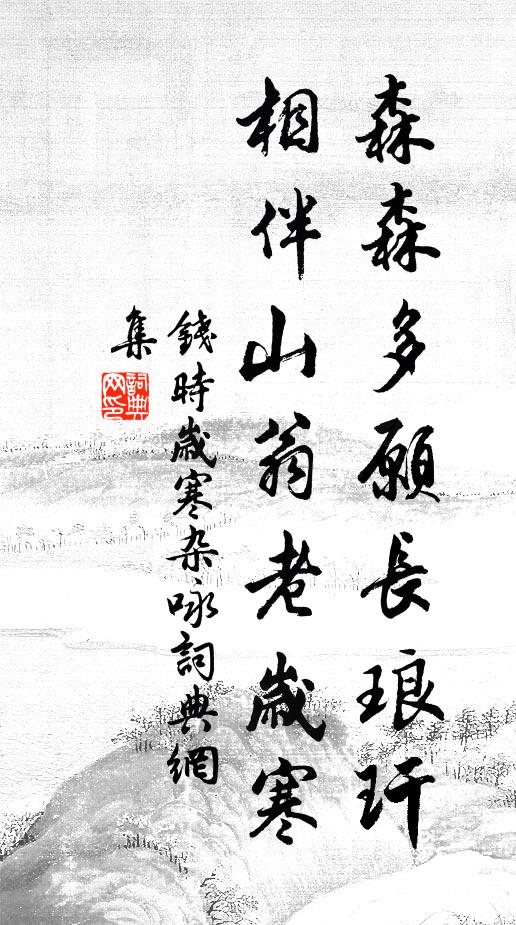 森森多願長琅玕
相伴山翁老歲寒
錢時歲寒杂咏詞典網
集
詞典网印